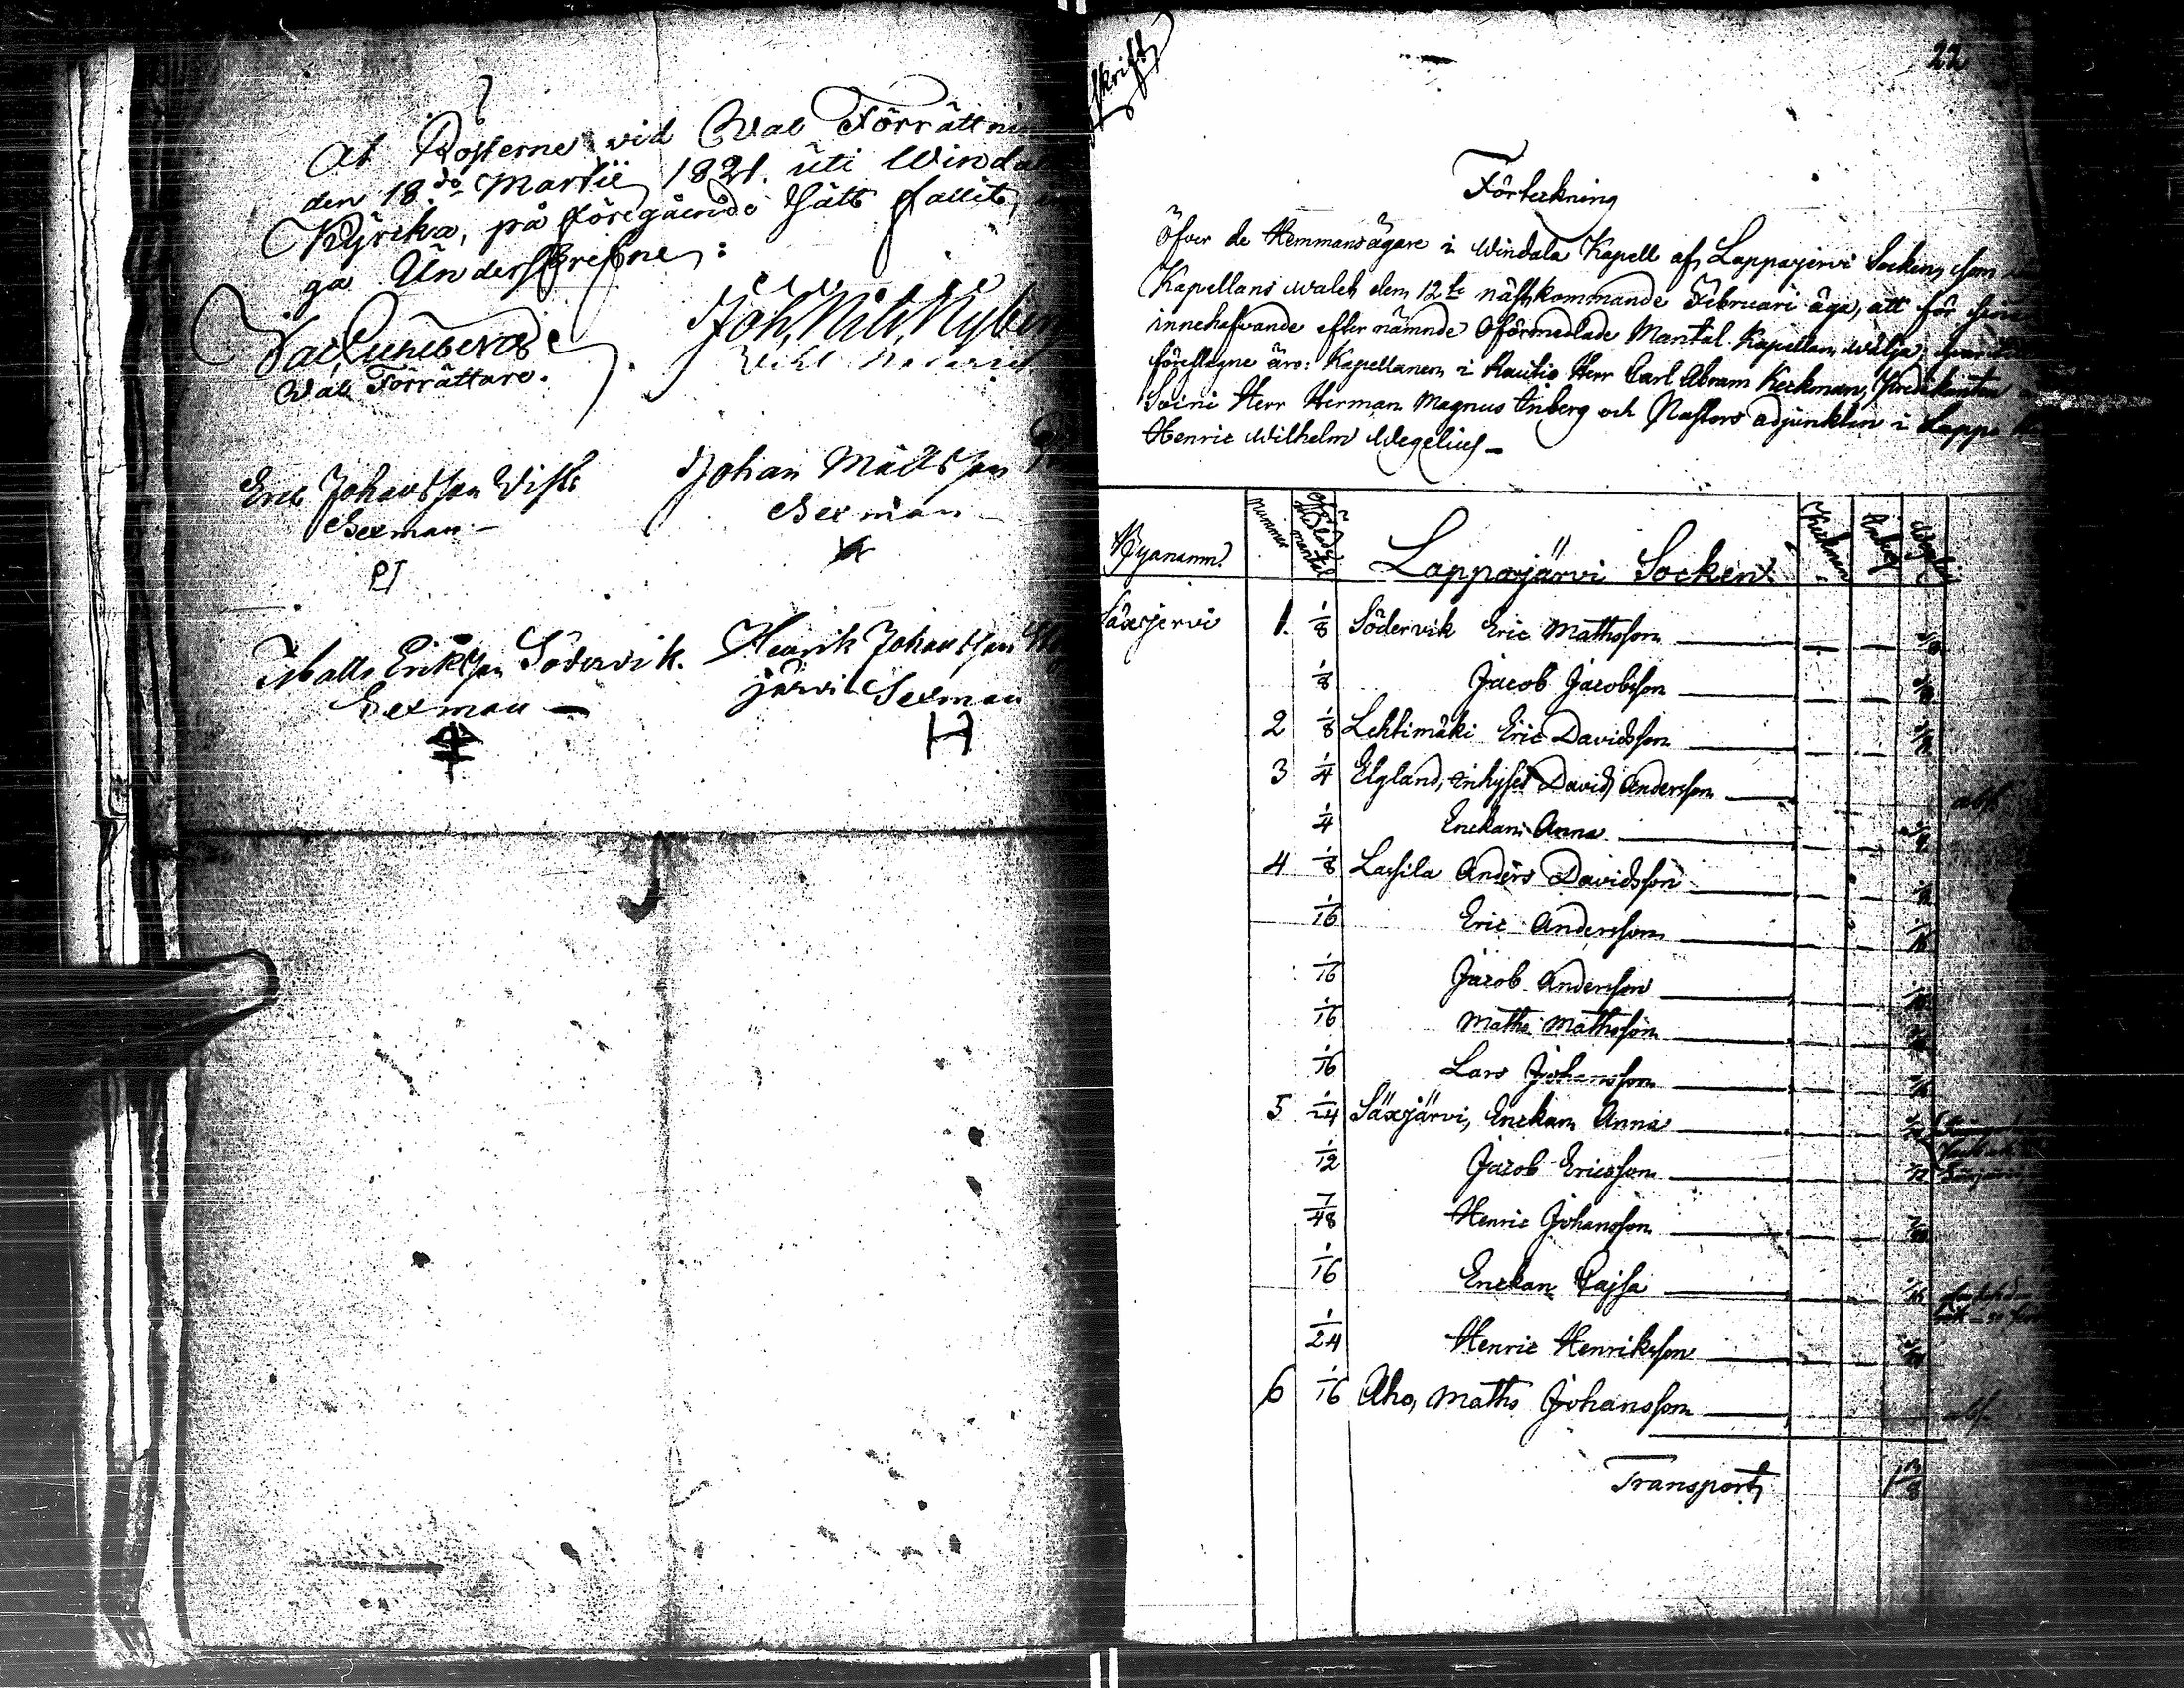 At Rösterne vid Val Förrättni
den 18:de Martii 1821. uti Winda
Kyrcka, på föregående sätt fallit,
ga Underskrefne:
Wal Förrättare.
Joh. Nils. Nyberg
Eric Johansson Viste
Sexman
Johan Mattsson
Sexman
Matts Eriksson Södervik.
Sexman
Henrik Johansson
järvi Sexman
H
22
skrift
Förteckning
Öfver de Hemmansägare i Windala Kapell af Lappajervi Socken, som
Kapellans walet den 12te nästkommande Februari äga, att för
innehafvande efternämnde Oförmedlade Mantal Kapellan wälja,
föreslagne äro: Kapellanen i Rautio Herr Carl Abram Keckman, Predikanten
Soini Herr Herman Magnus Enberg och Pastors adjunkten i Lappo
Henric Wilhelm Wegelius
Byanamn Nummer mantal Lappajärvi Socken Keckman Enberg Wegelius
Säxjervi 1. 1/8 Södervik Eric Mathsson
1/8 Jacob Jacobsson
2 1/8 Lehtimäki Eric Davidsson
3 1/4 Elgland, Inhyses David Andersson abs.
1/4 Enckan Anna
4 1/8 Lassila Anders Davidsson
1/16 Eric Andersson 1/16
1/16 Jacob Andersson
1/16 Maths Mathsson
1/16 Lars Johansson
5 1/24 Säxjärvi, Enckan Anna
1/12 Jacob Ericsson 1/12
7/48 Henric Johansson 7/48
1/16 Enckan Cajsa 1/16
1/24 Henric Henriksson
6 1/16 Aho, Maths Johansson abs.
Transport